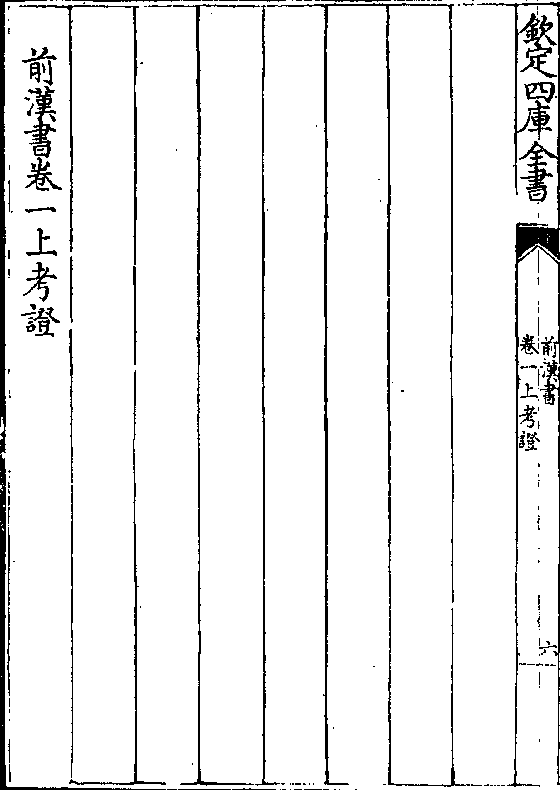 欽定四庫全書
前漢書
卷一上考證
六
前漢書卷一上考證